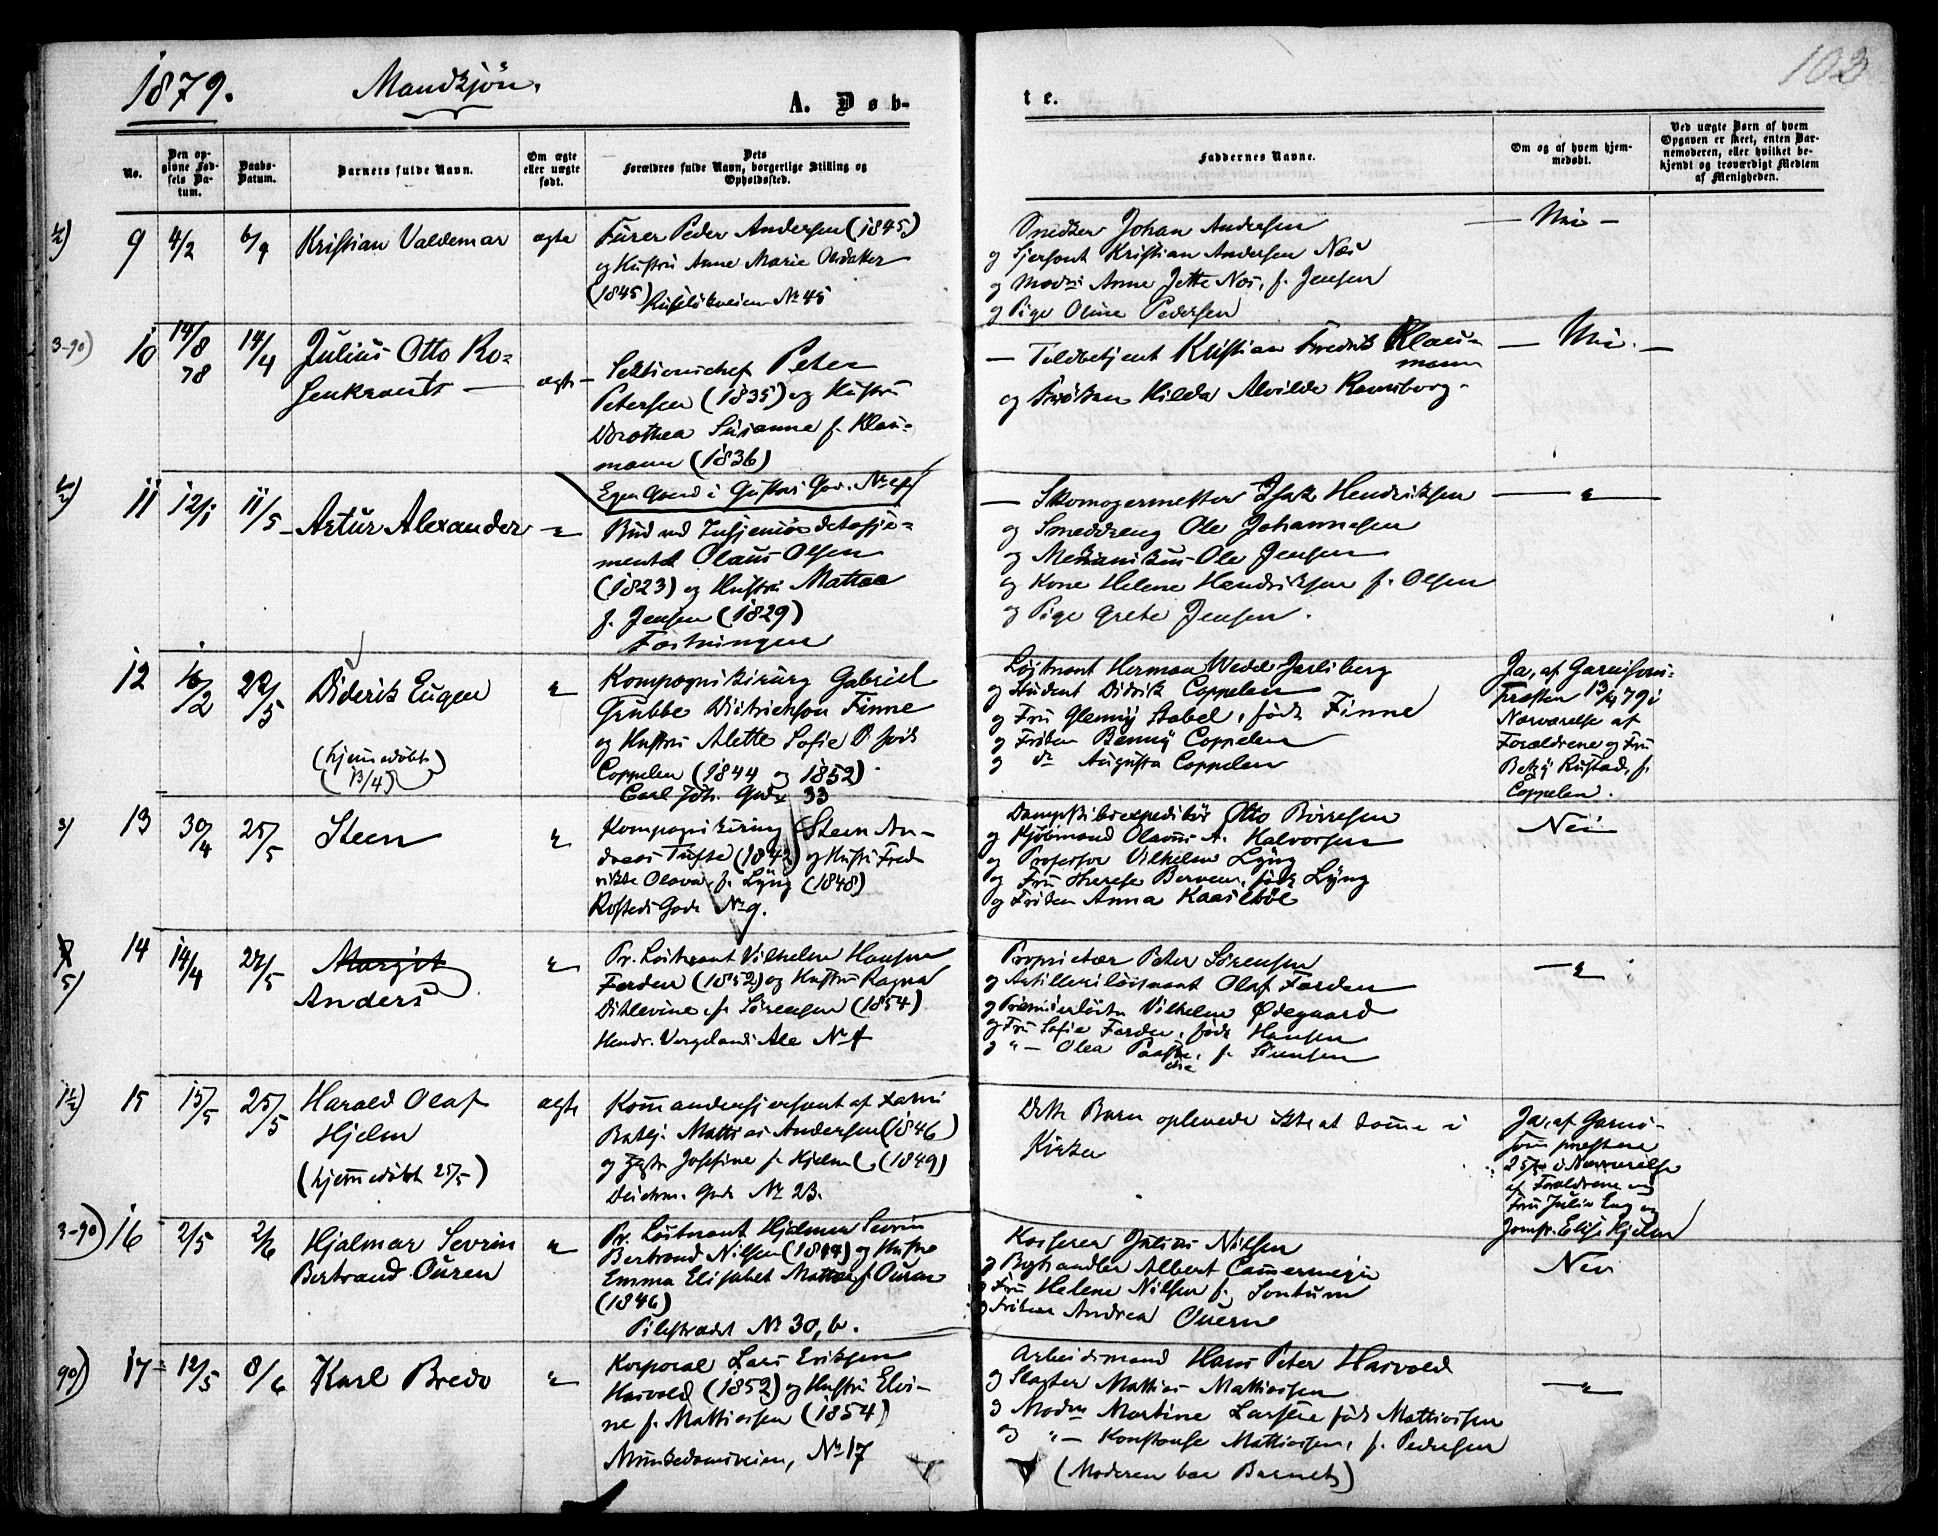 1879. Mandkjön. A. Døb-
te. 103
No.
Den op-
givne Fød-
sels Da-
tum.
Daabs-
Datum.
Barnets fulde Navn.
Om ægte
eller uægte
født.
Dets
Forældres fulde Navn, borgerlige Stilling og
Opholdssted.
Faddernes Navne.
Om og af hvem hjem-
medøbt.
Ved uægte Børn af hvem
Opgaven er skeet, enten Bar-
nemoderen, eller hvilket be-
kjendt og troværdigt Medlem
af Menigheden.
9 4/2 6/4 Kristian Valdemar ægte
Furer Peder Andersen (1845)
og Hustru Anne Marie
(1845) No 45
Snedker Johan Andersen
og Sjersant Kristian Andersen Næs
og Madm Anne Jette Næs, f. Jensen
og Pige Oline Pedersen
— Nei —
3-90) 10 14/8 78 14/4 Julius Otto Ro-
senkrants — ægte —
Sektionschef Peter
Petersen (1835) og Hustru
Dorothea Susanne f. Klau-
mann (1836)
Egen Gaard i Gustavs Gd. No
— Toldbetjent Kristian Fredrik Klau-
mann
og Frøken Hilda Alvilde Ramsborg.
— Nei. —
11 12/1 11/5 Artur Alexander — " —
Bud ved Insjeniørdetasje-
mentet Olaus Olsen
(1823) og Hustru Mattea
f. Jensen (1829)
Fæstningen
— Skomagermester Isak Hendriksen
og Smeddreng Ole Johannesen
og Mekanikus Ole Jensen
og Kone Helene Hendriksen f. Olsen
og Pige Grete Jensen.
— " —
12 16/2 22/5 Diderik Eugen
(hjemmedøbt
13/4)
"
Kompagnikirurg Gabriel
Grubbe Didrickson Finne
og Hustru Alette Sofie D. født
Coppelen (1844 og 1852).
Carl Joh. Gade 33
Løjtnant Herman Wedel Jarlsberg
og Student Didrik Coppelen
og Fru Glenny Stabel, født Finne
og Frøken Benny Coppelen
og do Augusta Coppelen
Ja, af Garnisons-
Præsten 13/4 79 i
Nærværelse af
Forældrene og Fru
Betzy Rustad, f.
Coppelen.
3) 13 30/4 25/5 Steen "
Kompagnikirurg Steen An-
dreas Tufte (1842) og Hustru Fred-
rikke Olava f. Lyng (1848)
Rosteds Gade No 9.
Dampskibsexpeditør Otto Børresen
og Kjøbmand Olavus A. Halvorsen
og Professor Vilhelm Lyng
og Fru Therese Berven, født Lyng
og Frøken Anna Kaasebøl
Nei
14 14/4 25/5 Margit
Anders
"
Pr. Løitnant Vilhelm Hansen
Farden (1852) og Hustru Ragna
Ditlevine f. Sørensen (1854)
Henr. Vergelands Ale No 4
Proprietær Peter Sørensen
og Artilleriløitnant Olaf Farden
og Premierløitn Vilhelm Ødegaard
og Fru Sofie Farden, født Hansen
og " — Olea Paaske, f. Sørensen
— " —
1½) 15 15/5 25/5 Harald Olaf
Hjelm
(hjemmedøbt 25/5)
ægte
Kommandersjersant af Farris
Batlj. Mattis Andersen (1846)
og Hustr Josefine f. Hjelm (1849)
Deichm. Gade No 23.
Dette Barn oplevede ikke at komme i
Kirken
Ja, af Garni-
sons præsten
25/5 i Nærværelse
af Forældrene og
Fru Julie Eng og
Jomfr. Elise Hjelm
3-90) 16 2/5 2/6 Hjalmar Sevrin
Bertrand Ouren
"
Pr. Løitnant Hjalmar Sevrin
Bertrand Nilsen (1844) og Hustru
Emma Elisabet Mattea f. Ouren
(1846)
Pilestrædet No 30, b.
Kasserer Julius Nilsen
og Boghandler Albert Cammermeyer
og Fru Helene Nilsen f. Sontum
og Frøken Andrea Ouerne
Nei
90) 17 12/5 8/6 Karl Bredo "
Korporal Lars Eriksen
Hasvold (1852) og Hustru Eli-
ne f. Mattissen (1854)
Munkedamsveien, No 17
Arbeidsmand Hans Peter Hasvold
og Slagter Mattias Mattissen
og Madm Martine Larsen født Mattissen
og " — Konstanse Mattissen, f. Pedersen
(Moderen bar Barnet)
— " —